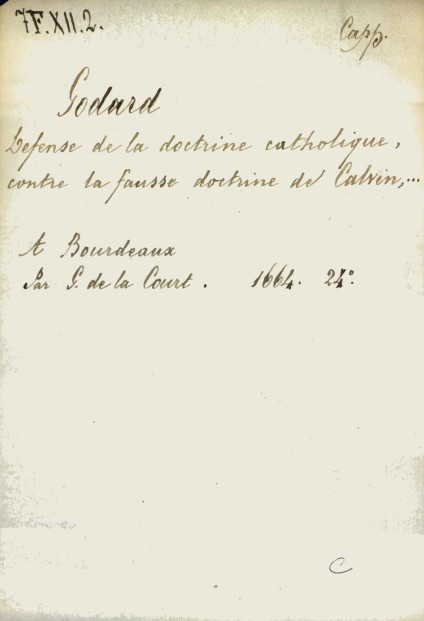 7F.XII.2.
Capp.
Godard
Defense de la doctrine catholique,
contre la fausse doctrine de Calvin,...
A Bourdeaux
Par G. de la Court. 1664. 24°.
C